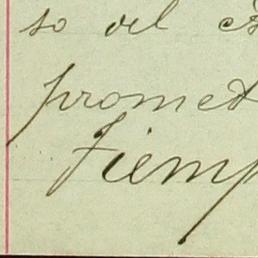 so del
promet
Tiemp